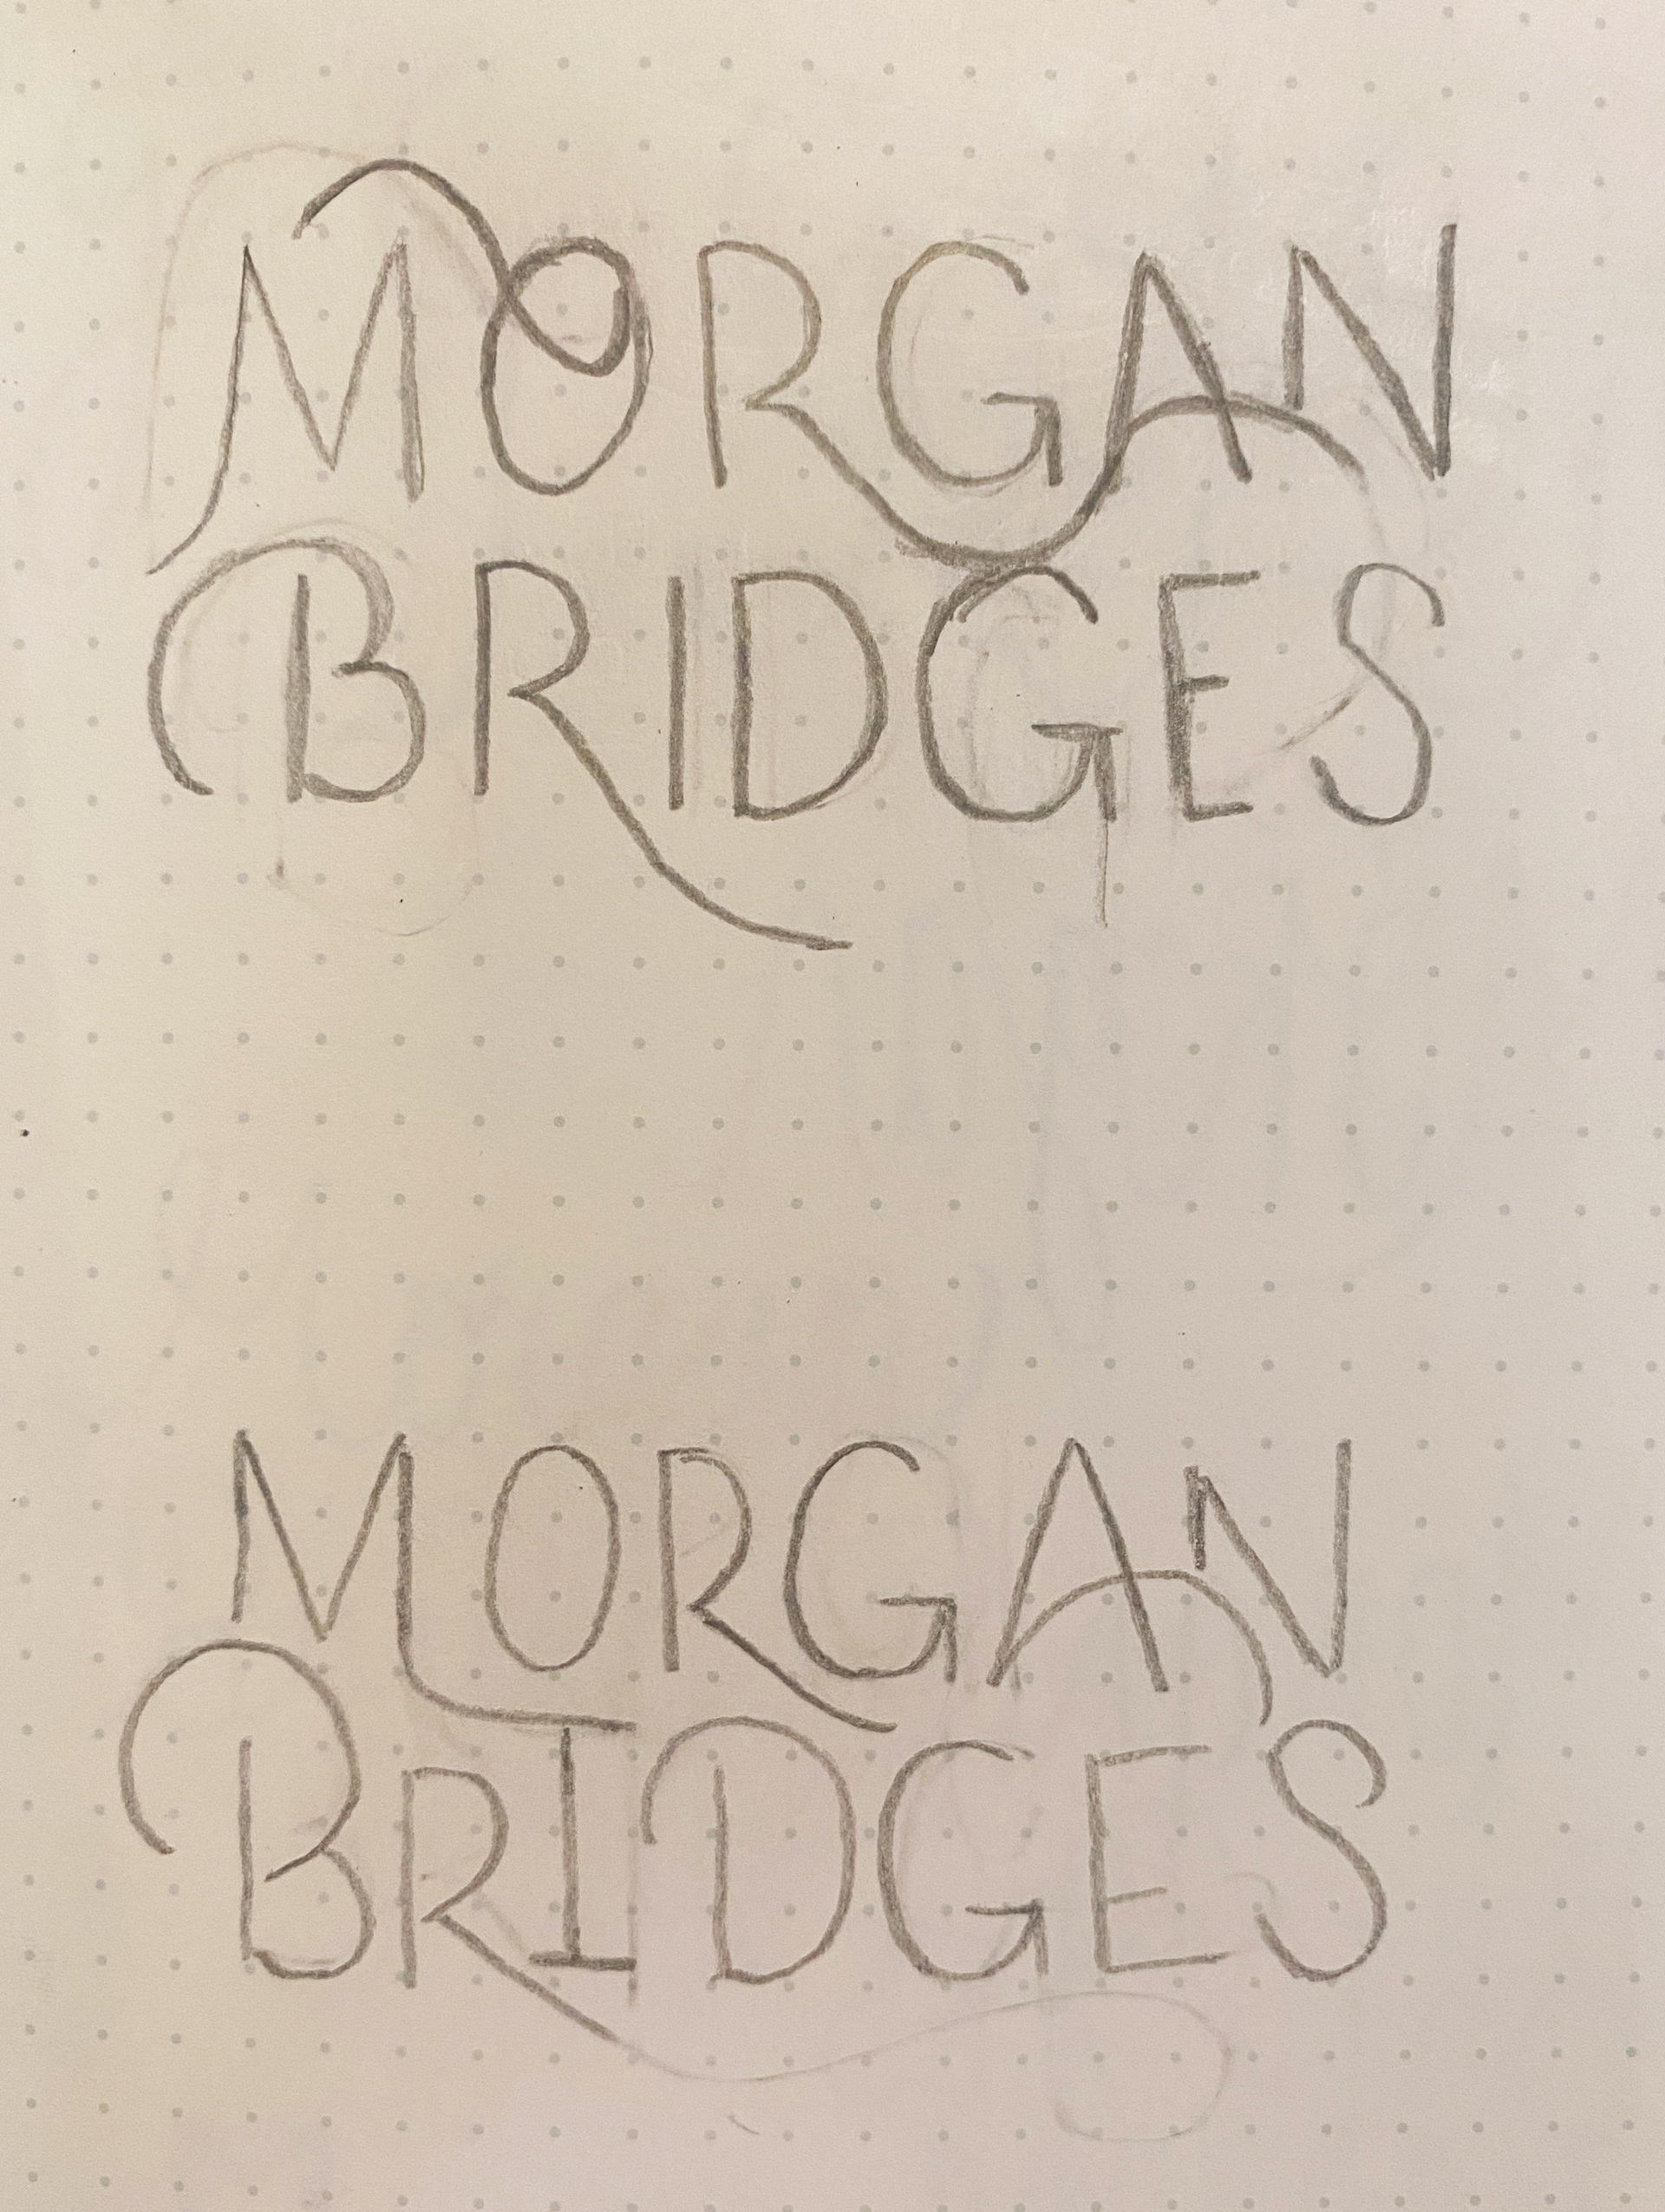 MORGAN
BRIDGES
MORGAN
BRIDGES